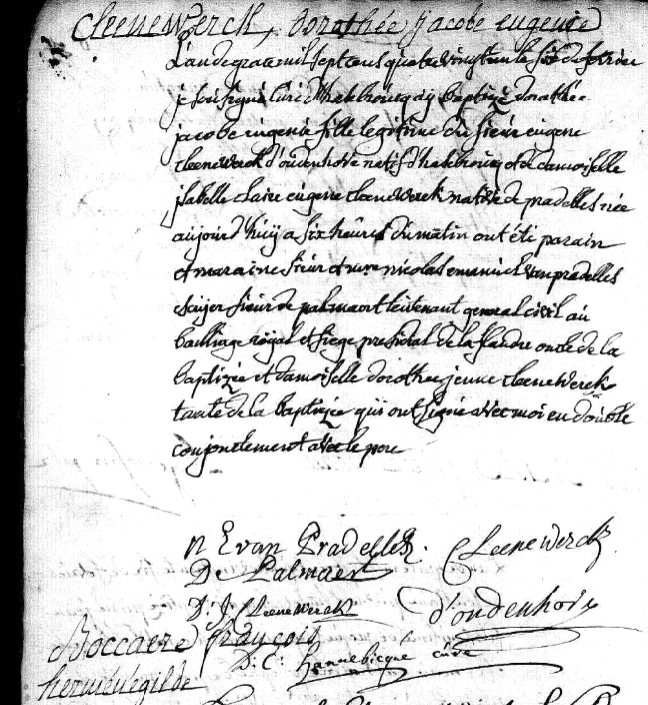 Cleenewerck, dorothée jacobe eugenie
L'an de grace mil sept cens quatre vingt un le six de fevrier
je soussigné Curé d'hasebroucq ay baptizé dorothée
jacobe eugenie fille legitime du sieur eugene
cleenewerck d'oudenhove natif d'hasebroucq et de damoiselle
isabelle claire eugene cleenewerck native de pradelles née
aujourd'huy a six heures du matin ont été parain
et maraine sieur et nicolas emanuel van pradelles
esuijer sieur de palmaert leitenant general civil au
bailliage royal et siege presidial de la flandre oncle de la
baptizée et damoiselle dorothee jenne cleenewerck
tante de la baptizée qui ont signé avec moi en double
conjontement avec le pere
n E van Pradelles. Cleenewerck
De Palmaert
D: J: Cleenewerck d'oudenhove
Boccaere françois
D: C: hannebicque curé
hermenegilde